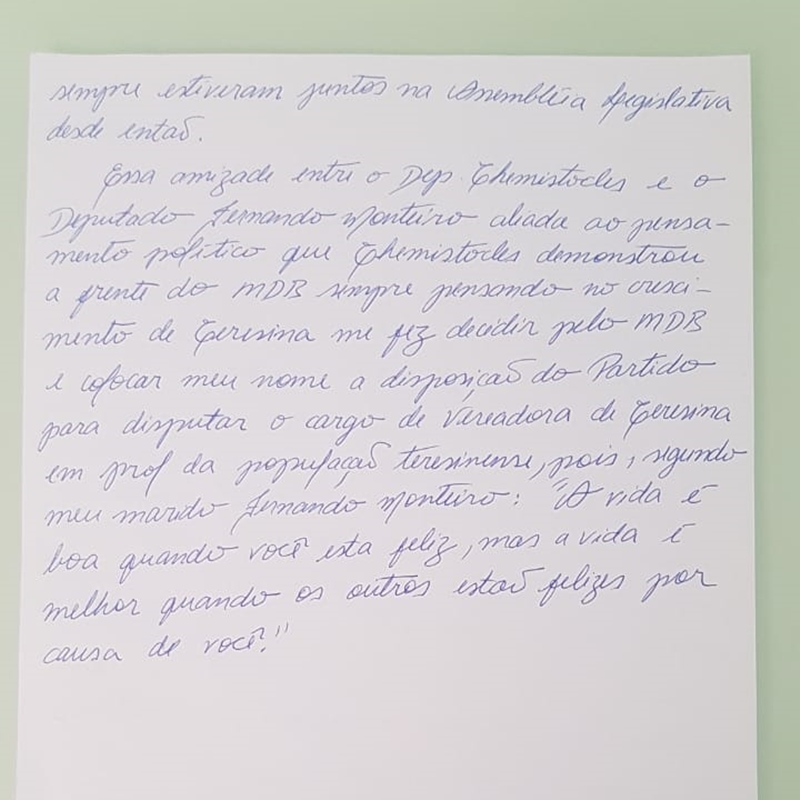 sempre estiveram juntos na Assembléia Legislativa
desde então.
Essa amizade entre o Dep. Themistocles e o
Deputado Fernando Monteiro aliada ao pensa-
mento político que Themistocles demonstrou
a frente do MDB sempre pensando no cresci-
mento de Teresina me fez decidir pelo MDB
e colocar meu nome a disposição do Partido
para disputar o cargo de Vereadora de Teresina
em prol da população teresinense, pois, segundo
meu marido Fernando Monteiro: "A vida é
boa quando você esta feliz, mas a vida é
melhor quando os outros estão felizes por
causa de você."